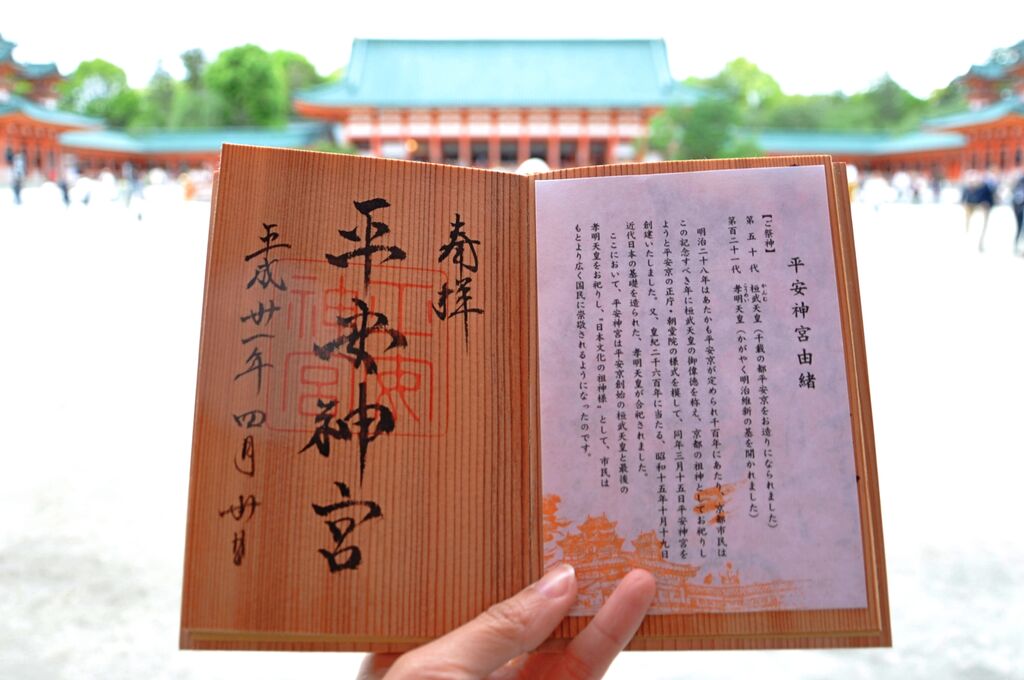 平安神宮由緒
【ご祭神】
第五十代 桓武天皇（千載の都平安京をお造りになられました）
かんむ
第百二十一代 孝明天皇（かがやく明治維新の基を開かれました）
こうめい
明治二十八年はあたかも平安京が定められ千百年にあたり、京都市民は
この記念すべき年に桓武天皇の御偉徳を称え、京都の祖神としてお祀りし
ようと平安京の正庁・朝堂院の様式を模して、同年三月十五日平安神宮を
創建いたしました。又、皇紀二千六百年に当たる、昭和十五年十月十九日
近代日本の基礎を造られた、孝明天皇が合祀されました。
ここにおいて、平安神宮は平安京創始の桓武天皇と最後の
孝明天皇をお祀りし、“日本文化の祖神様”として、市民は
もとより広く国民に崇敬されるようになったのです。
奉拝
平安神宮
平成卅一年四月廿日